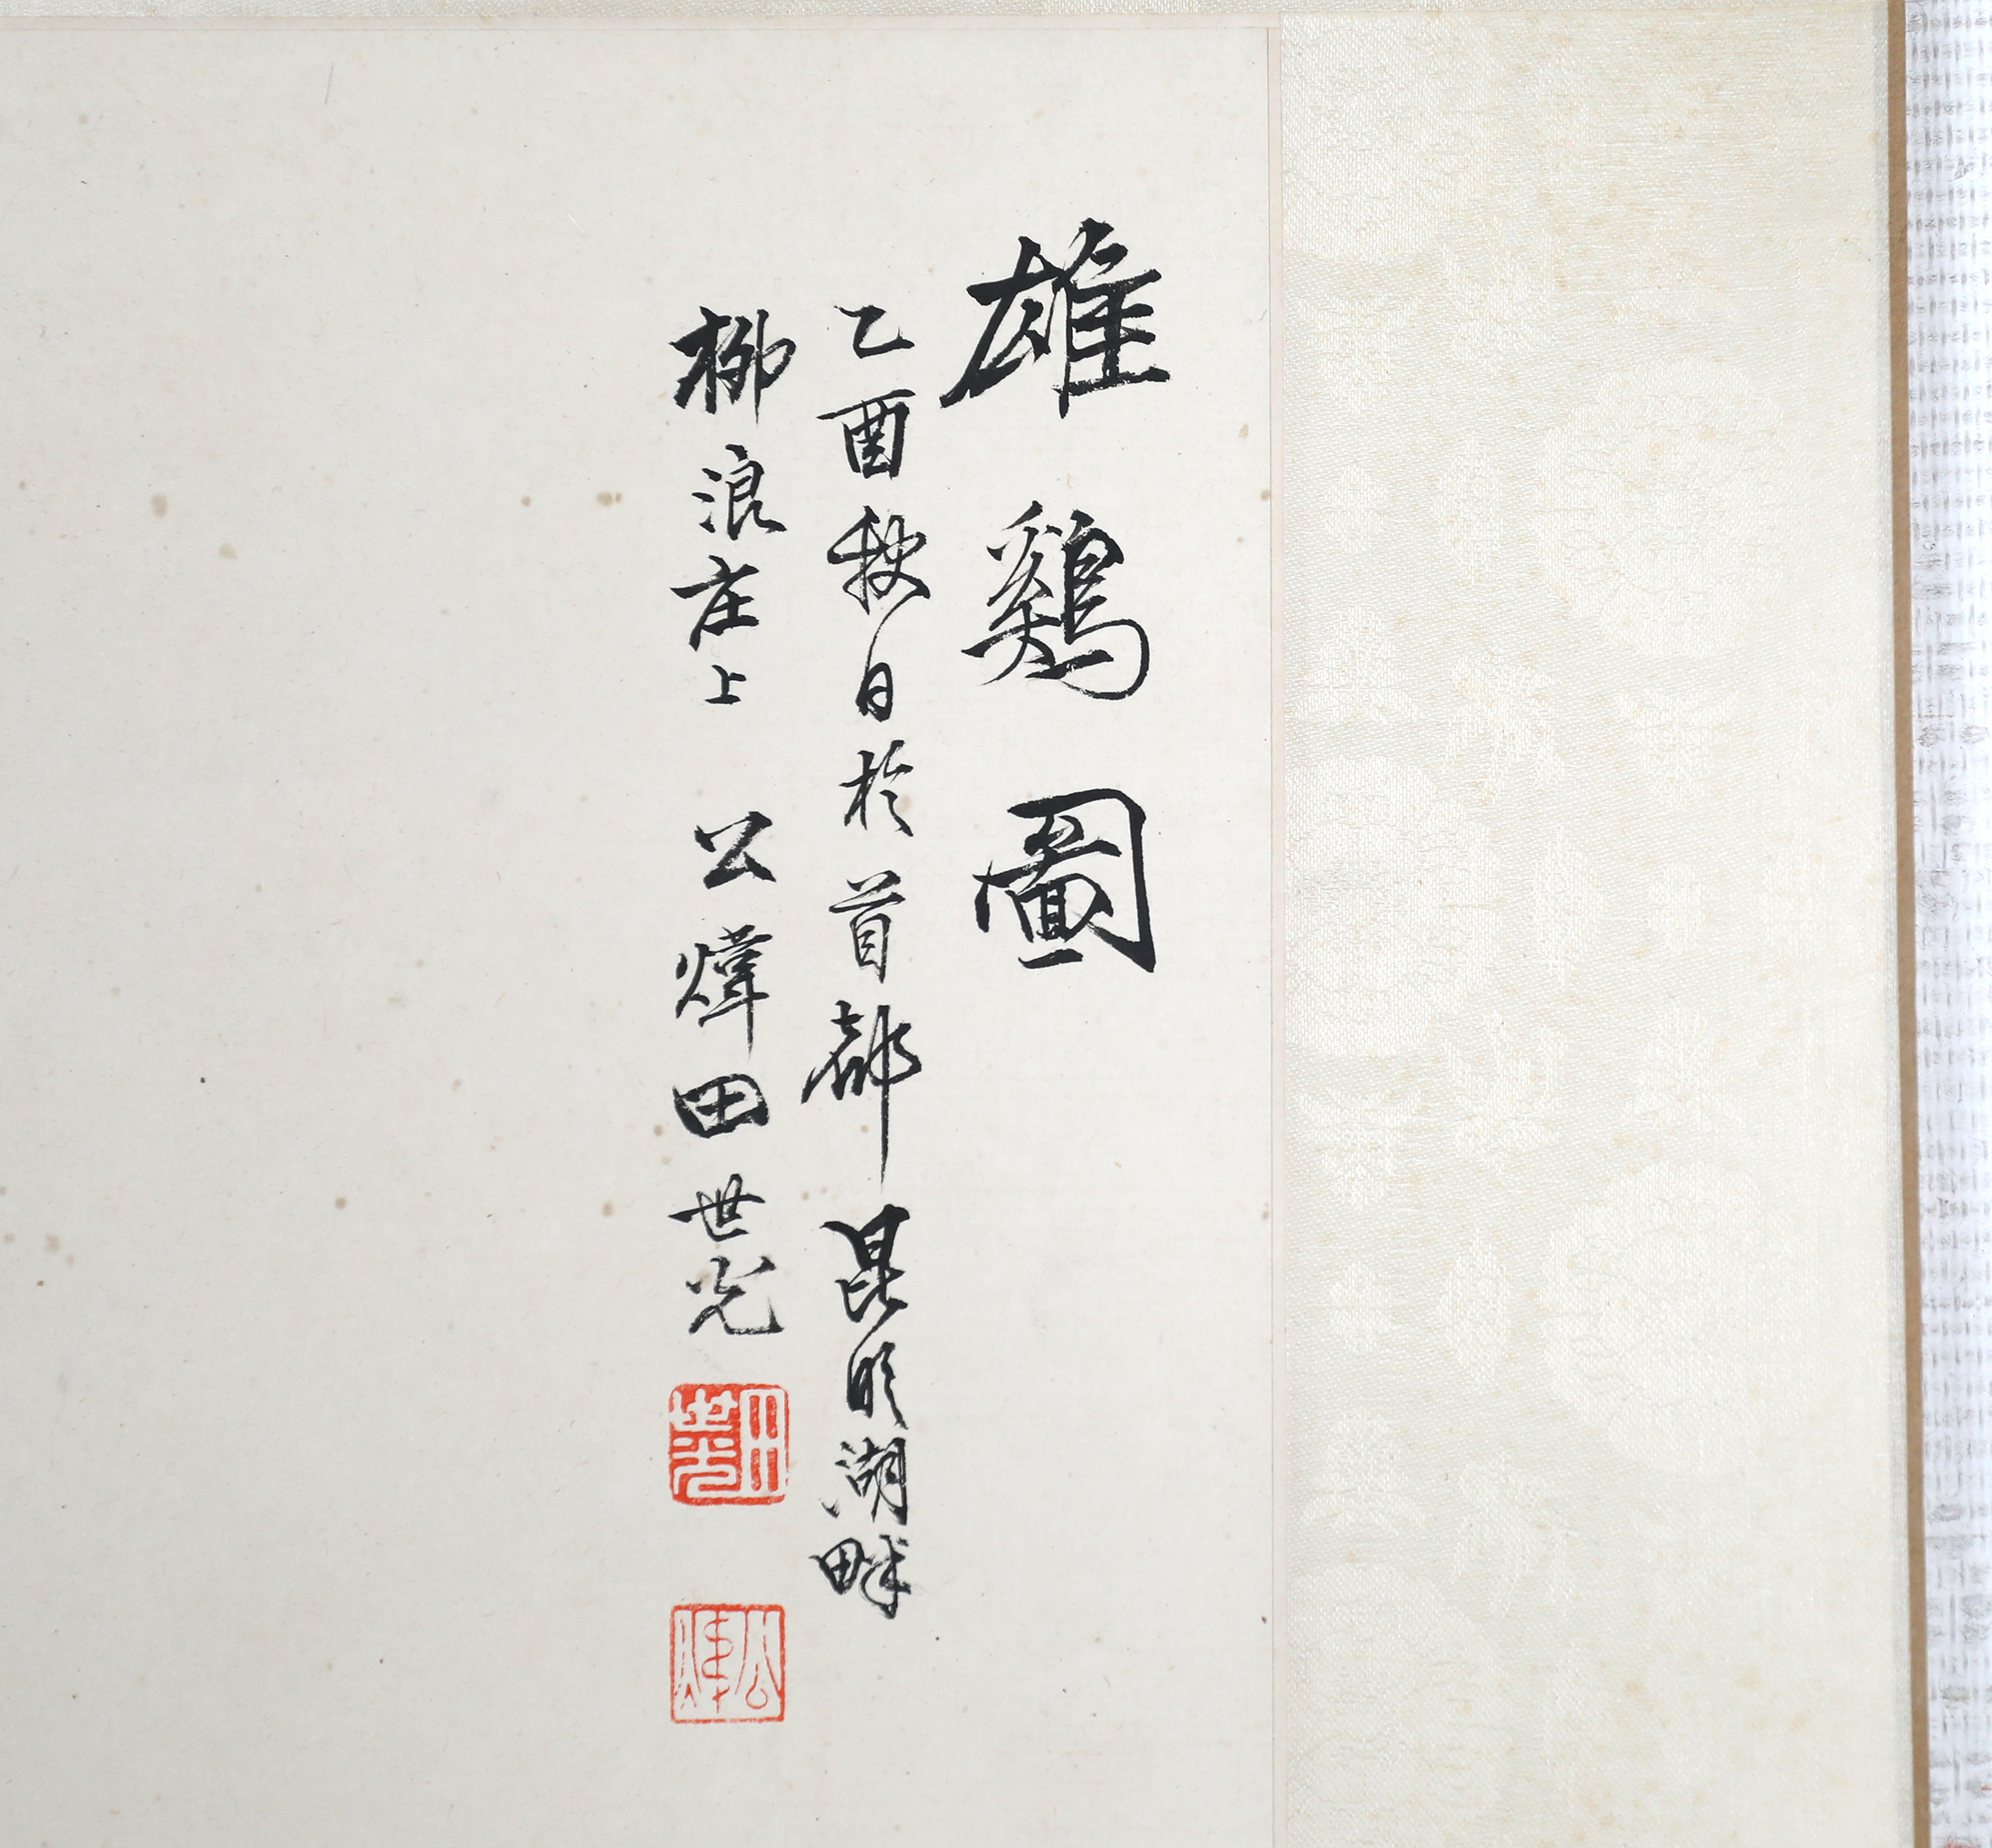 雄鷄圖
乙酉秋日於首都昆明湖畔
柳浪庄上 公煒田世光
田世光
公煒